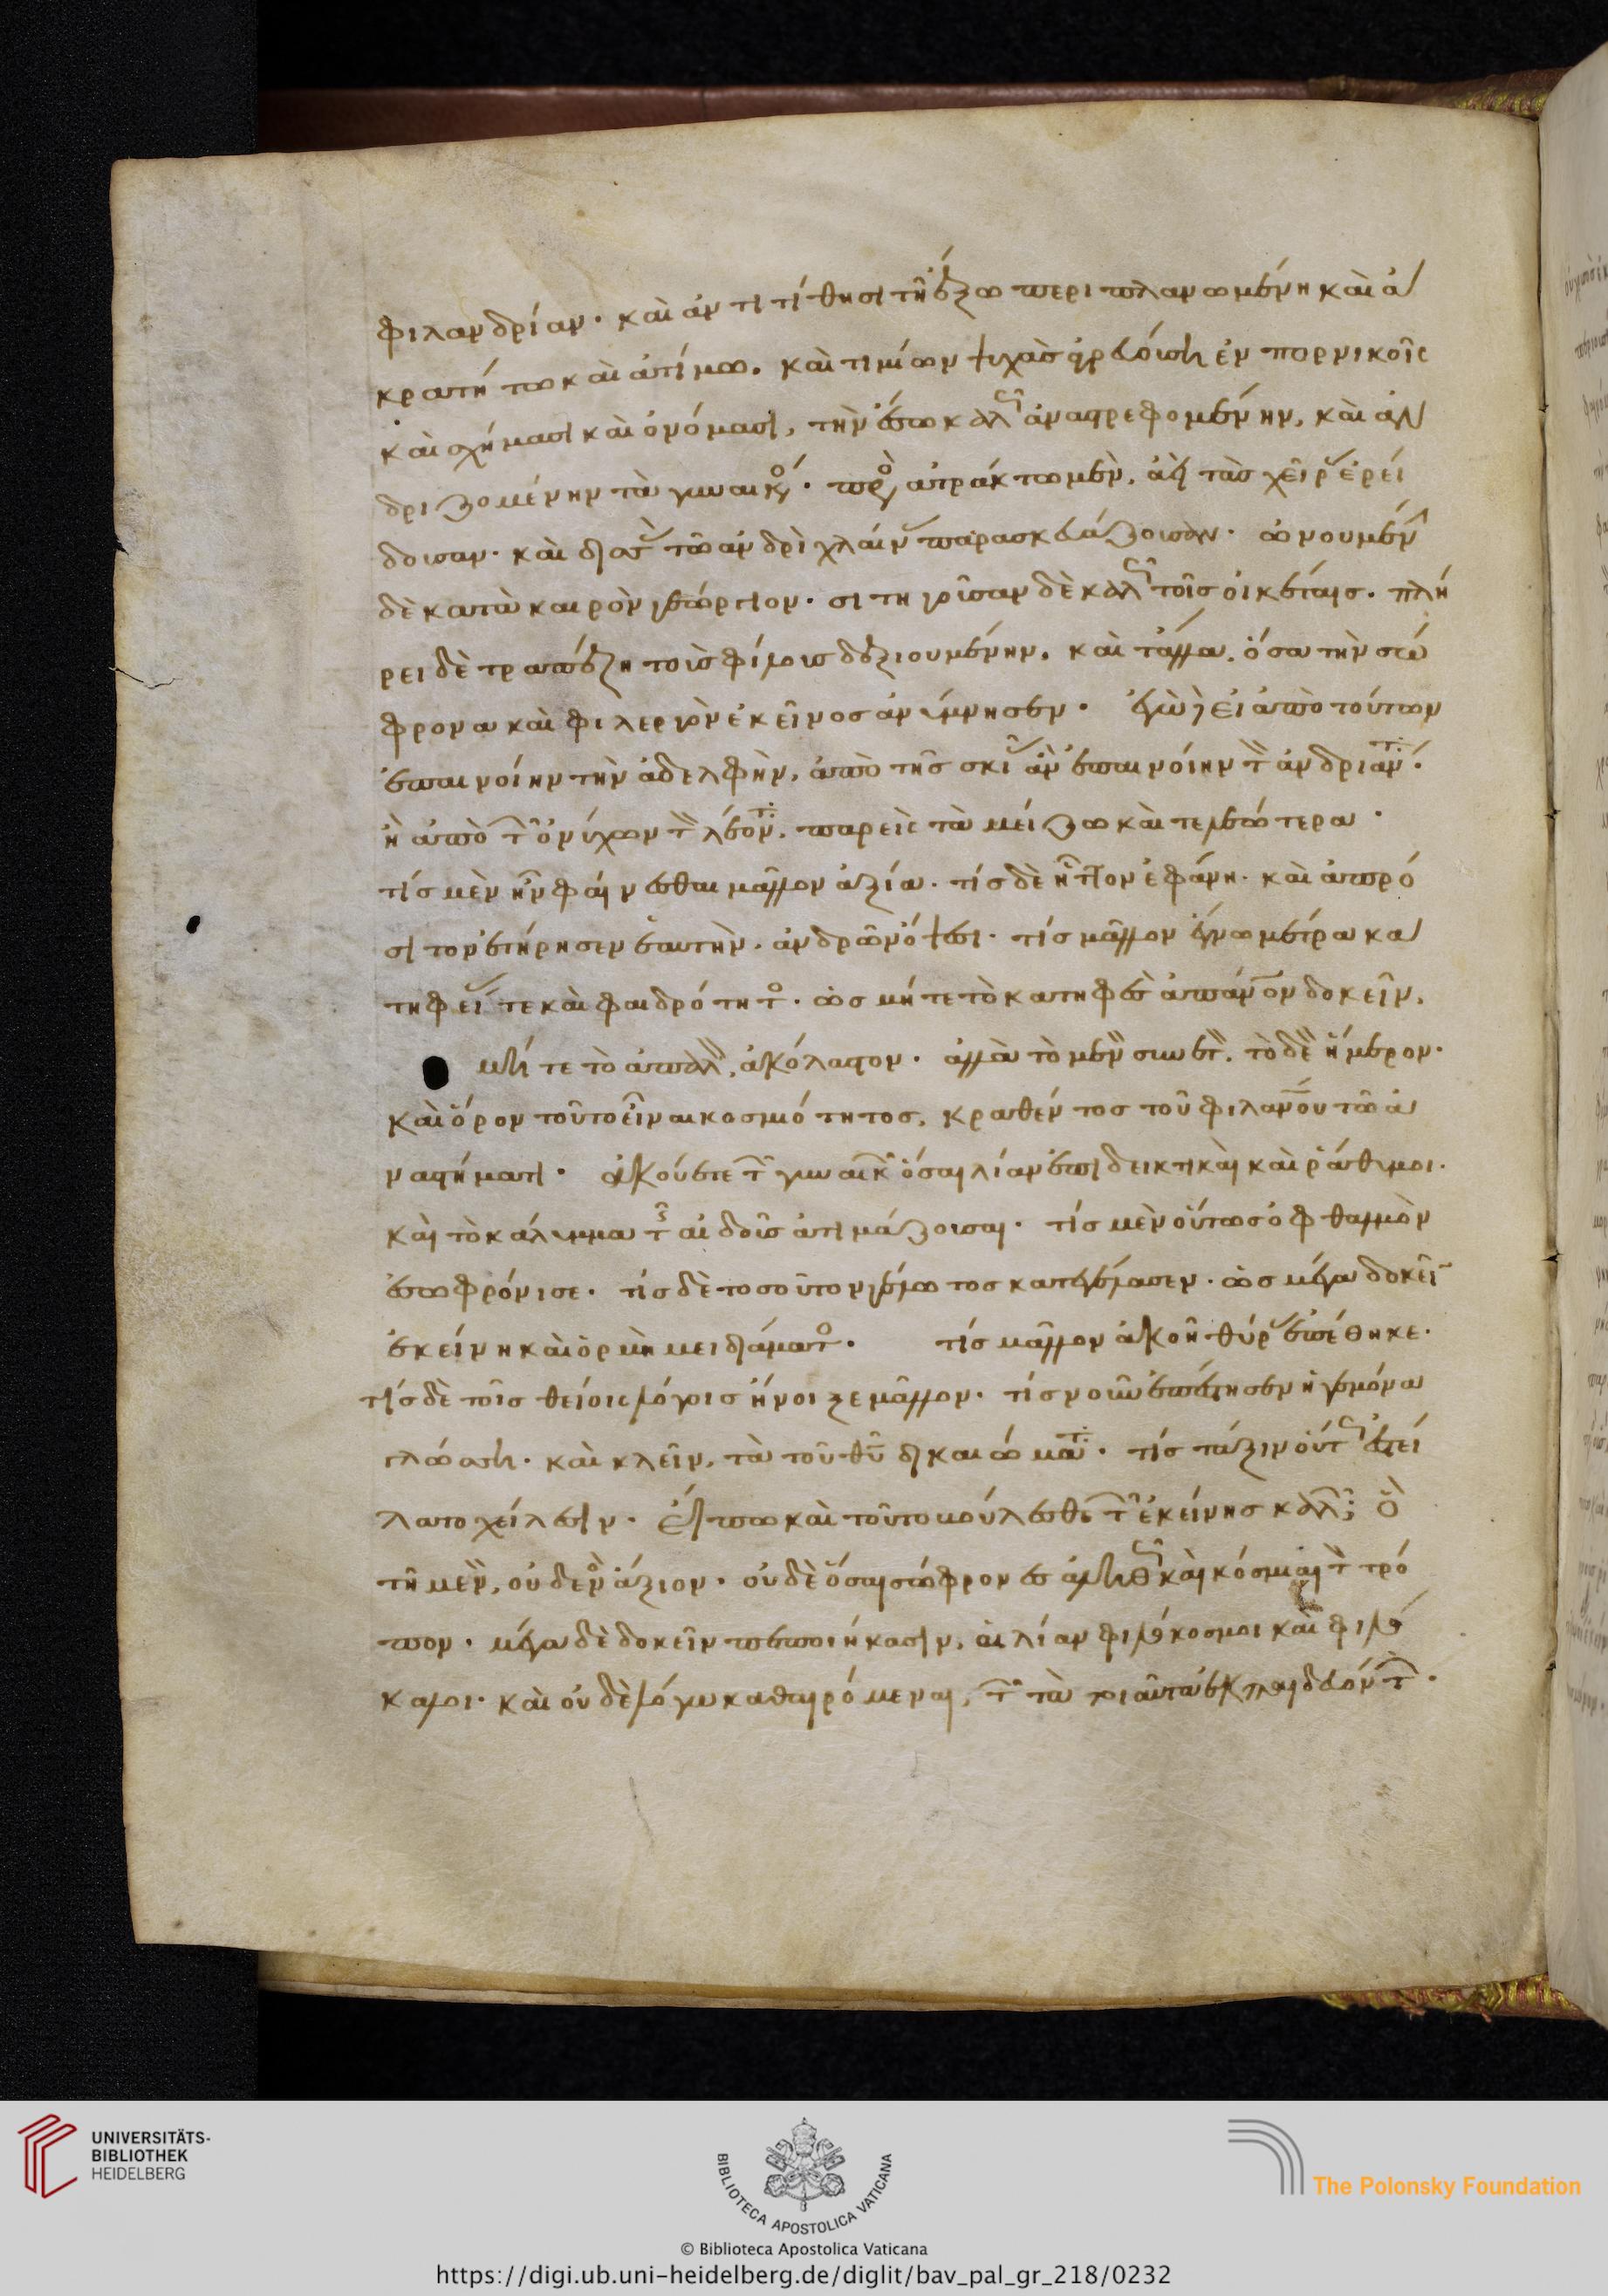 φιλανδρίαν· καὶ ἀντιτίθησι τῆ ἔξω περιπλανωμένη καὶ ἀ
κρατήτω καὶ ἀτίμω. καὶ τιμίων ψυχὰς ἀγρευούση ἐν πορνικοῖς
καὶ σχήμασι καὶ ὀνόμασι, τὴν ἔσω καλῶς ἀναστρεφομένην, καὶ ἀν
δριζομένην τὰ γυναικός· πρὸς ἄτρακτον μὲν, ἀεὶ τὰς χεῖρας ἐρεί
δουσαν· καὶ δισσὰς τῶ ἀνδρὶ χλαίνας παρασκευάζουσαν· ὠνουμένην
δὲ κατὰ καιρὸν γεώργιον· σιτηγοῦσαν δὲ καλῶς τοῖς οἰκέταις. πλή
ρει δὲ τραπέζη τοὺς φίλους δεξιουμένην. καὶ τἄλλα, ὅσα τὴν σώ
φρονα καὶ φιλεργὸν ἐκεῖνος ἀνύμνησεν· ἐγὼ δὲ εἰ ἀπὸ τούτων
ἐπαινοίην τὴν ἀδελφὴν, ἀπὸ τῆς σκιᾶς ἂν ἐπαινοίην τὸν ἀνδριάντα·
ἢ ἀπὸ τῶν ὀνύχων τὸν λέοντα, παρεὶς τὰ μείζω καὶ τελεώτερα·
τίς μὲν ἦν φαίνεσθαι μᾶλλον ἀξία· τίς δὲ ἧττον ἐφάνη· καὶ ἀπρό
σιτον ἐτήρησεν ἑαυτὴν, ἀνδρῶν ὄψεσι· τίς μᾶλλον ἔγνω μέτρα κα
τηφείας τε καὶ φαιδρότητος· ὡς μήτε τὸ κατηφὲς ἀπάνον δοκεῖν,
μήτε τὸ ἁπαλὸν, ἀκόλαστον· ἀλλὰ τὸ μὲν συνετὸν, τὸ δὲ ἥμερον·
καὶ ὅρον τοῦτο εἶναι κοσμιότητος, κραθέντος τοῦ φιλανου τῶ ἀ
ναστήματι· ἀκούετε τῶν γυναικῶν ὅσαι λίαν ἐπιδεικτικαὶ καὶ ῥάθυμοι.
καὶ τὸ κάλυμμα τῆς αἰδοῦς ἀτιμάζουσαι· τίς μὲν οὕτως ὀφθαλμὸν
ἐσωφρόνισε· τίς δὲ τοσοῦτον γέλωτος κατεγέλασεν· ὡς μέγα δοκεῖν
ἐκείνη καὶ ὁρμὴ μειδιάματος· τίς μᾶλλον ἀκοῆ θύρας ἐπέθηκε·
τίς δὲ τοῖς θείοις λόγοις ἤνοιξε μᾶλλον· τίς νοῦν ἐπέστησεν ἡγεμόνα
γλώσση· καὶ κλεῖν, τὰ τοῦ θυ δικαιώματα· τίς τάξιν οὕτως ἐστεί
λατο χείλεσιν· εἴπω καὶ τοῦτο βούλεσθε τῶν ἐκείνης καλῶν; ὃ
τῆ μὲν, οὐδενὸς ἄξιον· οὐδὲ ὅσαι σώφρονες ἀληθῶς καὶ κόσμιαι τὸν τρό
πον· μέγα δὲ δοκεῖν πεποιήκασιν, αἱ λίαν φιλόκοσμοι καὶ φιλό
καλοι· καὶ οὐδὲ λόγω καθαιρόμεναι, τῶν τὰ τοιαῦτα ἐκπαιδευόντων·
UNIVERSITÄTS-
BIBLIOTHEK
HEIDELBERG
BIBLIOTECA APOSTOLICA VATICANA
The Polonsky Foundation
© Biblioteca Apostolica Vaticana
https://digi.ub.uni-heidelberg.de/diglit/bav_pal_gr_218/0232